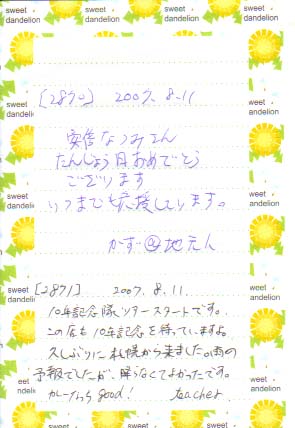 sweet dandelion
[2870] 2007. 8. 11
安倍なつみさん
たんじょう日おめでとう
ございます
いつまでも応援しています。
かず@地元人
[2871] 2007. 8. 11.
10年記念隊ツアースタートです。
この店も10年記念を待っていますよ。
久しぶりに札幌から来ました。雨の
予報でしたが、降らなくてよかったです。
カレーうらら good! teacher